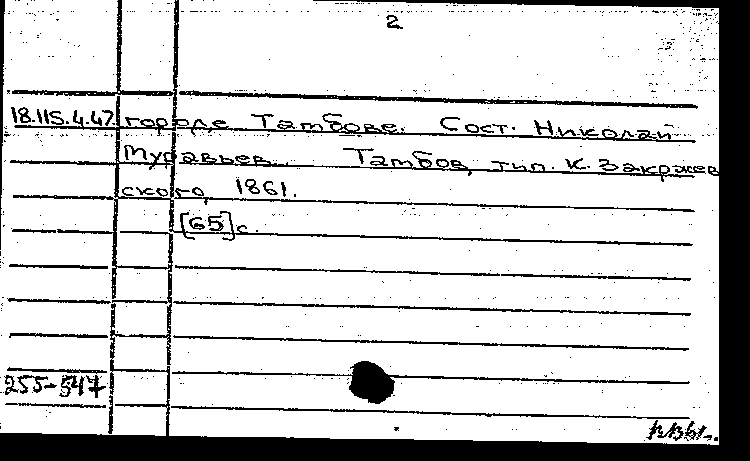 2
18.115.4.47. городе Тамбове. Сост. Николай
Муравьев. Тамбов, тип. К. Закржев
ского, 1861.
[65] с.
255-547